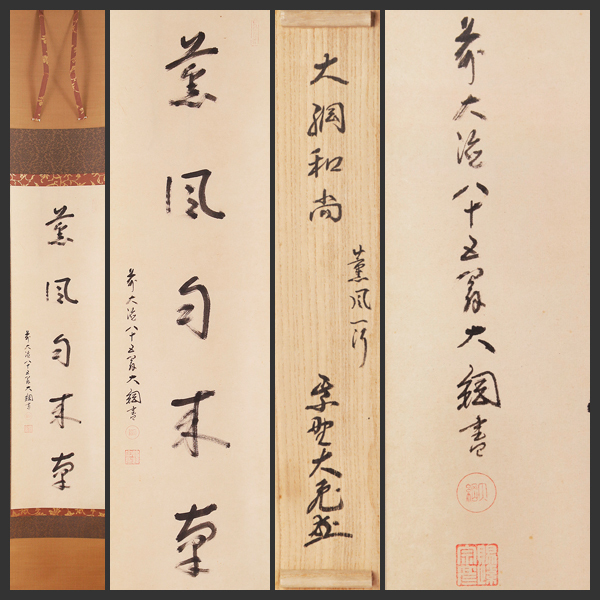 薫風自来南
前大徳八十五翁大綱書
薫風自来南
前大徳八十五翁大綱書
大綱和尚
薫風一行
紫野大亀
前大徳八十五翁大綱書